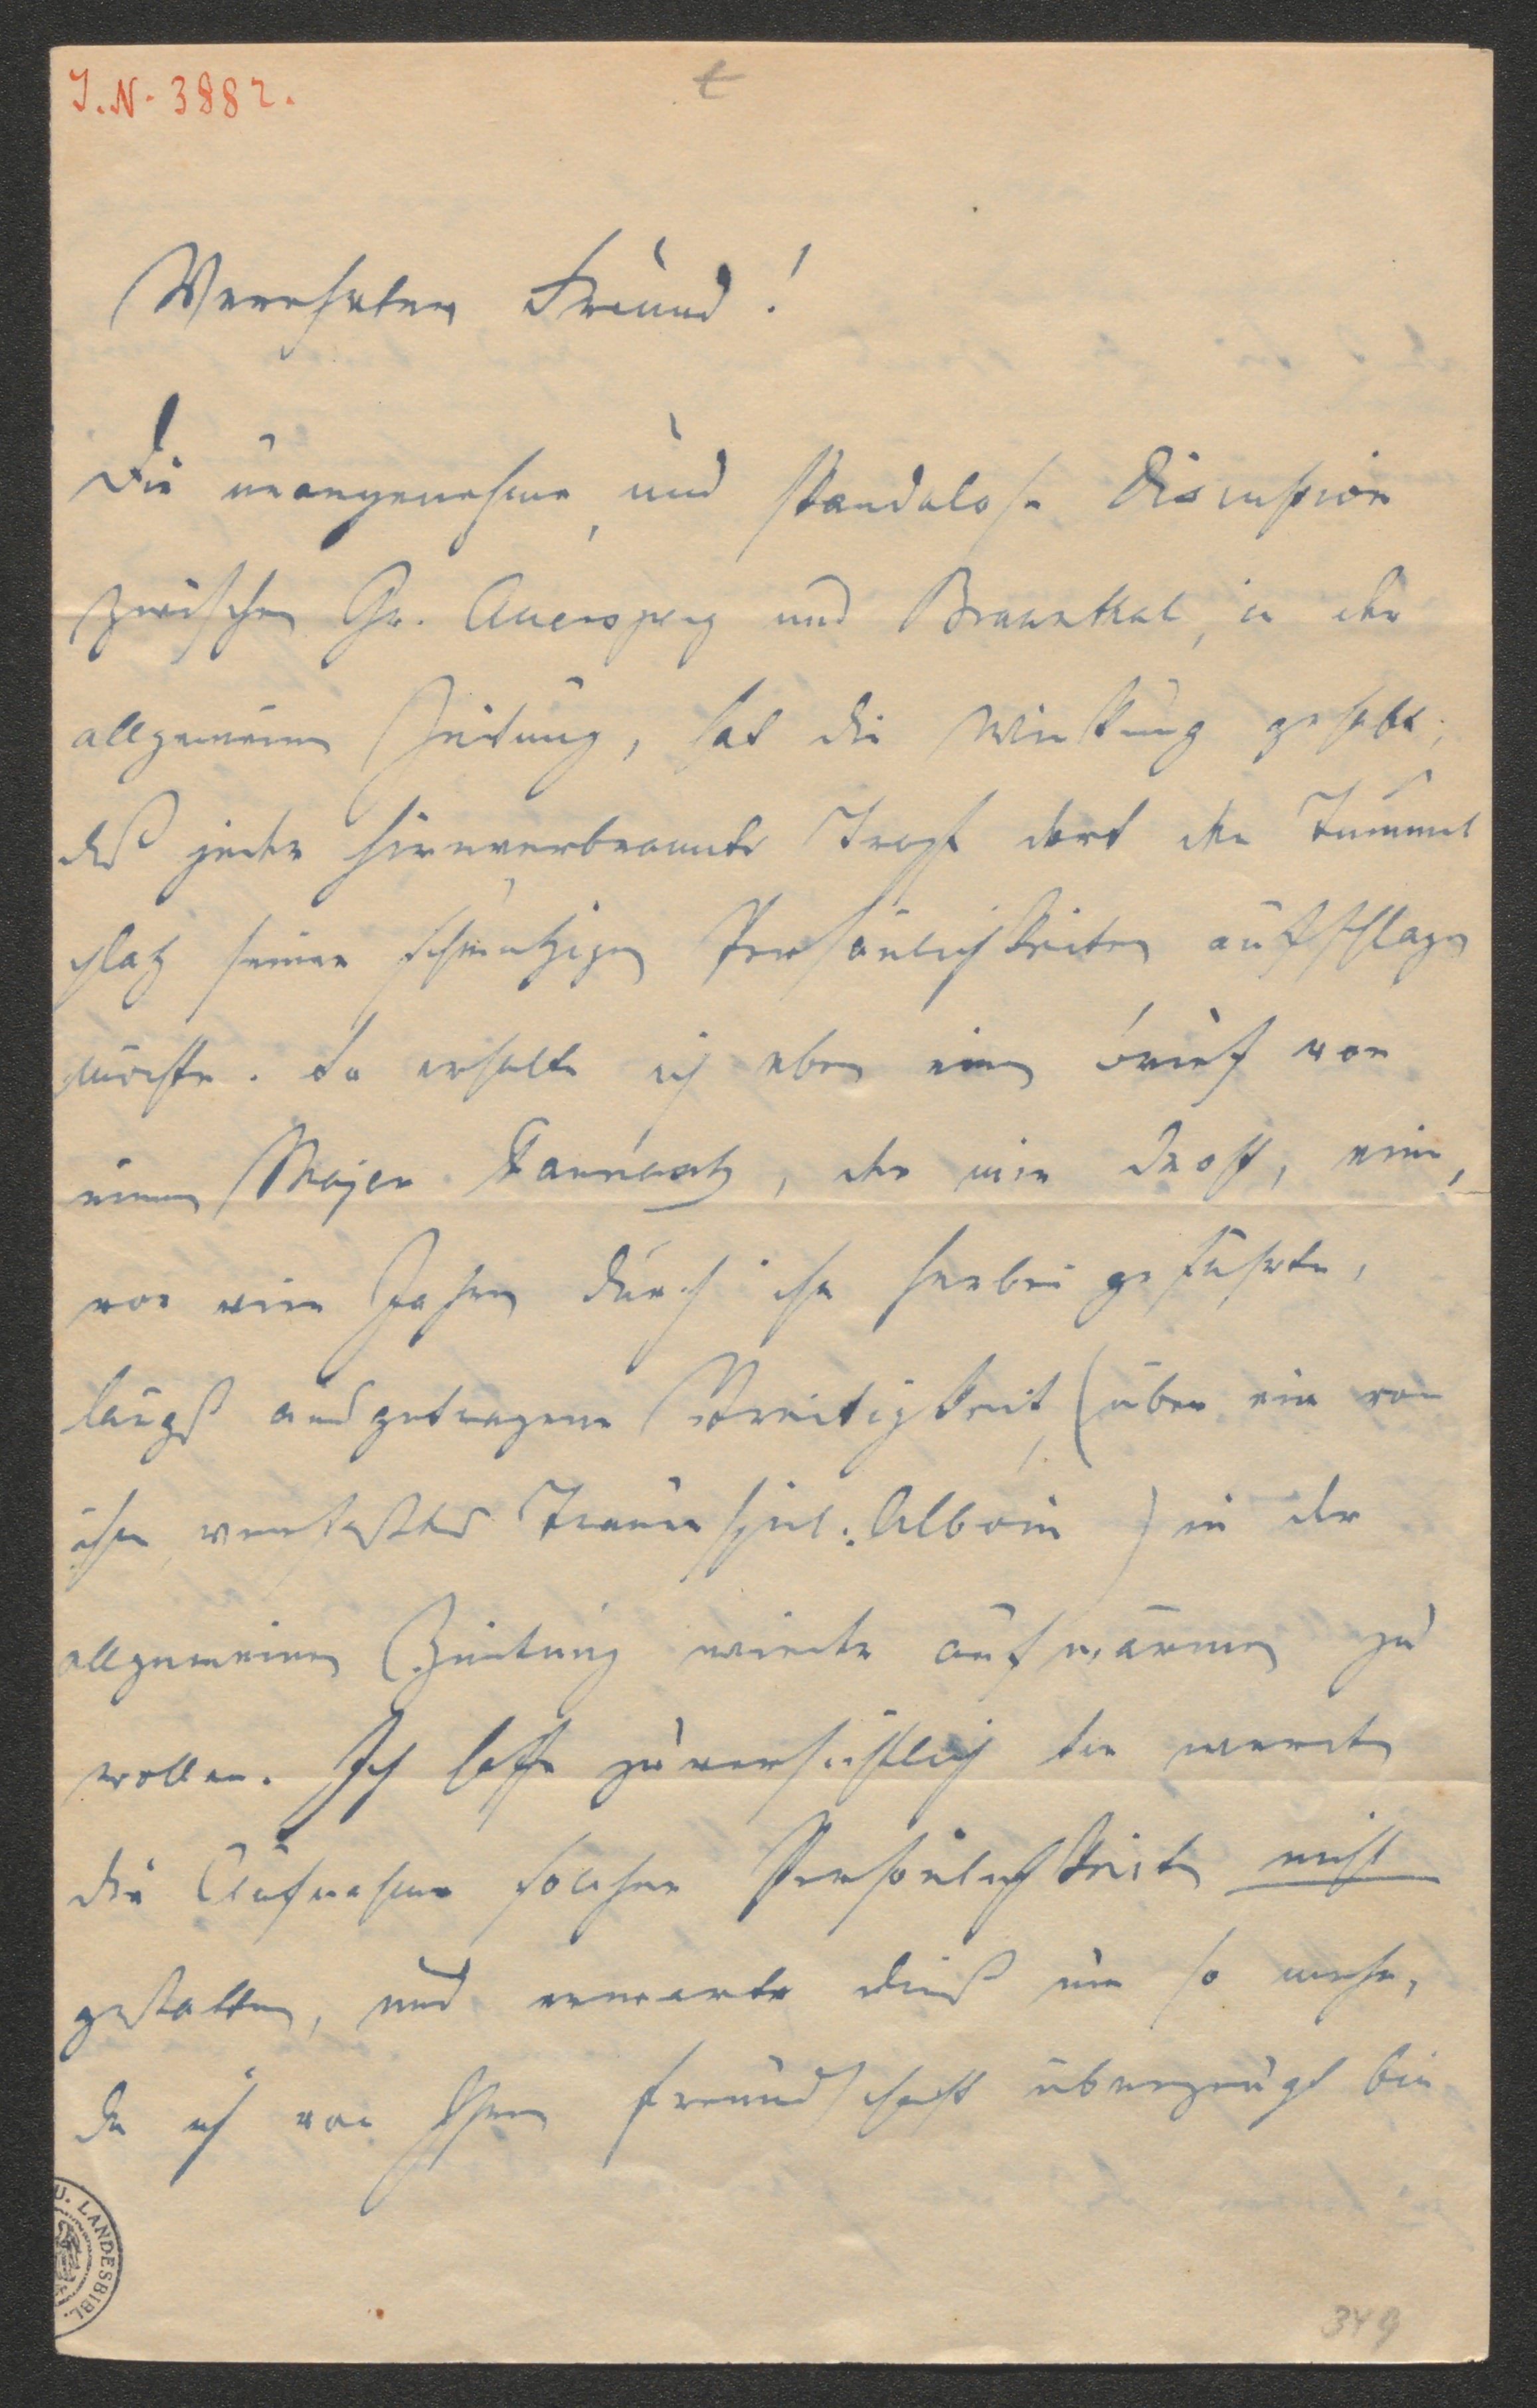 I.N. 3882.
t
Verehrter Freund!
Die unangenehme, und skandalose Discussion
zwischen Gr. Auersperg und Braunthal, in der
allgemeinen Zeitung, hat die Wirkung gehabt,
daß jeder hirnverbrannte Tropf dort den Tummel
platz seiner schmutzigen Persönlichkeiten aufschlagen
möchte. So erhalte ich eben einen Brief von
einem Major, der mir droht, eine,
vor vier Jahren durch ihn herbei geführte,
längst ausgetragene Streitigkeit, (über ein von
ihm verfaßtes Trauerspiel: Alboin) in der
allgemeinen Zeitung wieder aufwärmen zu
wollen. Ich hoffe zuversichtlich Sie werden
die Aufnahme solcher Persönlichkeiten nicht
gestatten, und erwarte dieß um so mehr,
da ich von Ihrer Freundschaft überzeugt bin
U. LANDESBIBL.
349